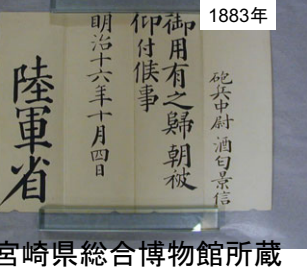 1883年
砲兵中尉 酒匂景信
御用有之歸朝被
仰付候事
明治十六年十月四日
陸軍省
宮崎県総合博物館所蔵